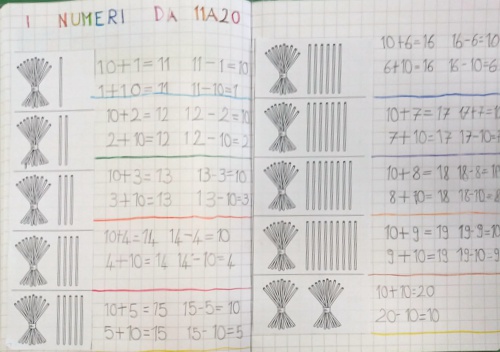 I NUMERI DA 11A20
10+1=11 11-1=10
1+10=11 11-10=1
10+2=12 12-2=10
2+10=12 12-10=2
10+3=13 13-3=10
3+10=13 13-10=3
10+4=14 14-4=10
4+10=14 14-10=4
10+5=15 15-5=10
5+10=15 15-10=5
10+6=16 16-6=10
6+10=16 16-10=6
10+7=17
7+10=17 17-10=
10+8=18 18-8=10
8+10=18 18-10=8
10+9=19 19-9=10
9+10=19 19-10=9
10+10=20
20-10=10